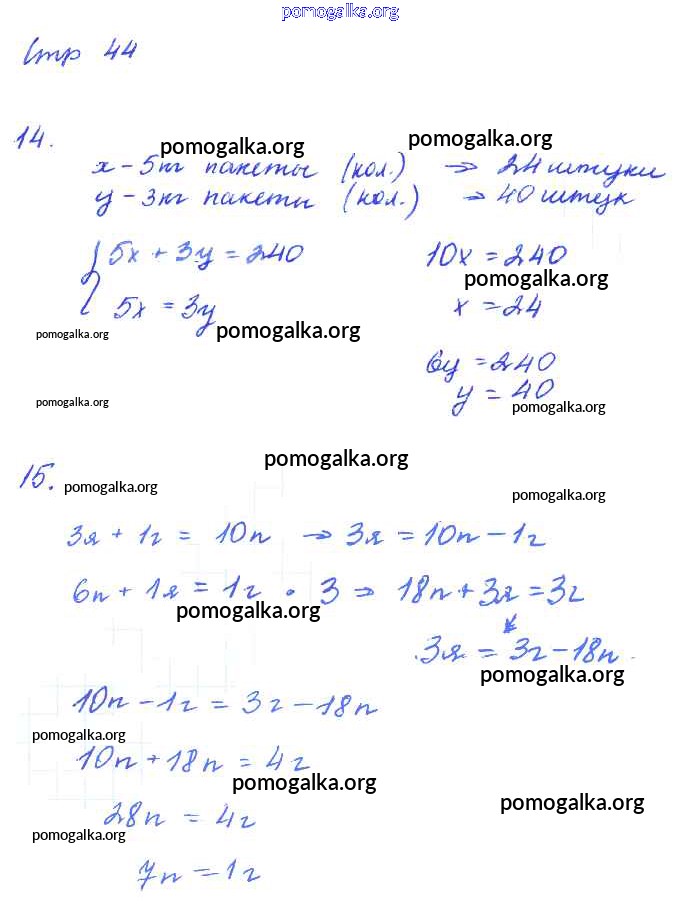 pomogalka.org
Стр 44
14.
pomogalka.org
pomogalka.org
x - 5кг пакеты (кол.) → 24 штуки
y - 3кг пакеты (кол.) → 40 штук
5x + 3y = 240
10x = 240
pomogalka.org
5x = 3y
x = 24
pomogalka.org
pomogalka.org
6y = 240
pomogalka.org
y = 40
pomogalka.org
15.
pomogalka.org
pomogalka.org
pomogalka.org
3я + 1г = 10п → 3я = 10п - 1г
6п + 1я = 1г · 3 ⇒ 18п + 3я = 3г
pomogalka.org
3я = 3г - 18п.
pomogalka.org
10п - 1г = 3г - 18п
pomogalka.org
10п + 18п = 4г
pomogalka.org
pomogalka.org
28п = 4г
pomogalka.org
7п = 1г